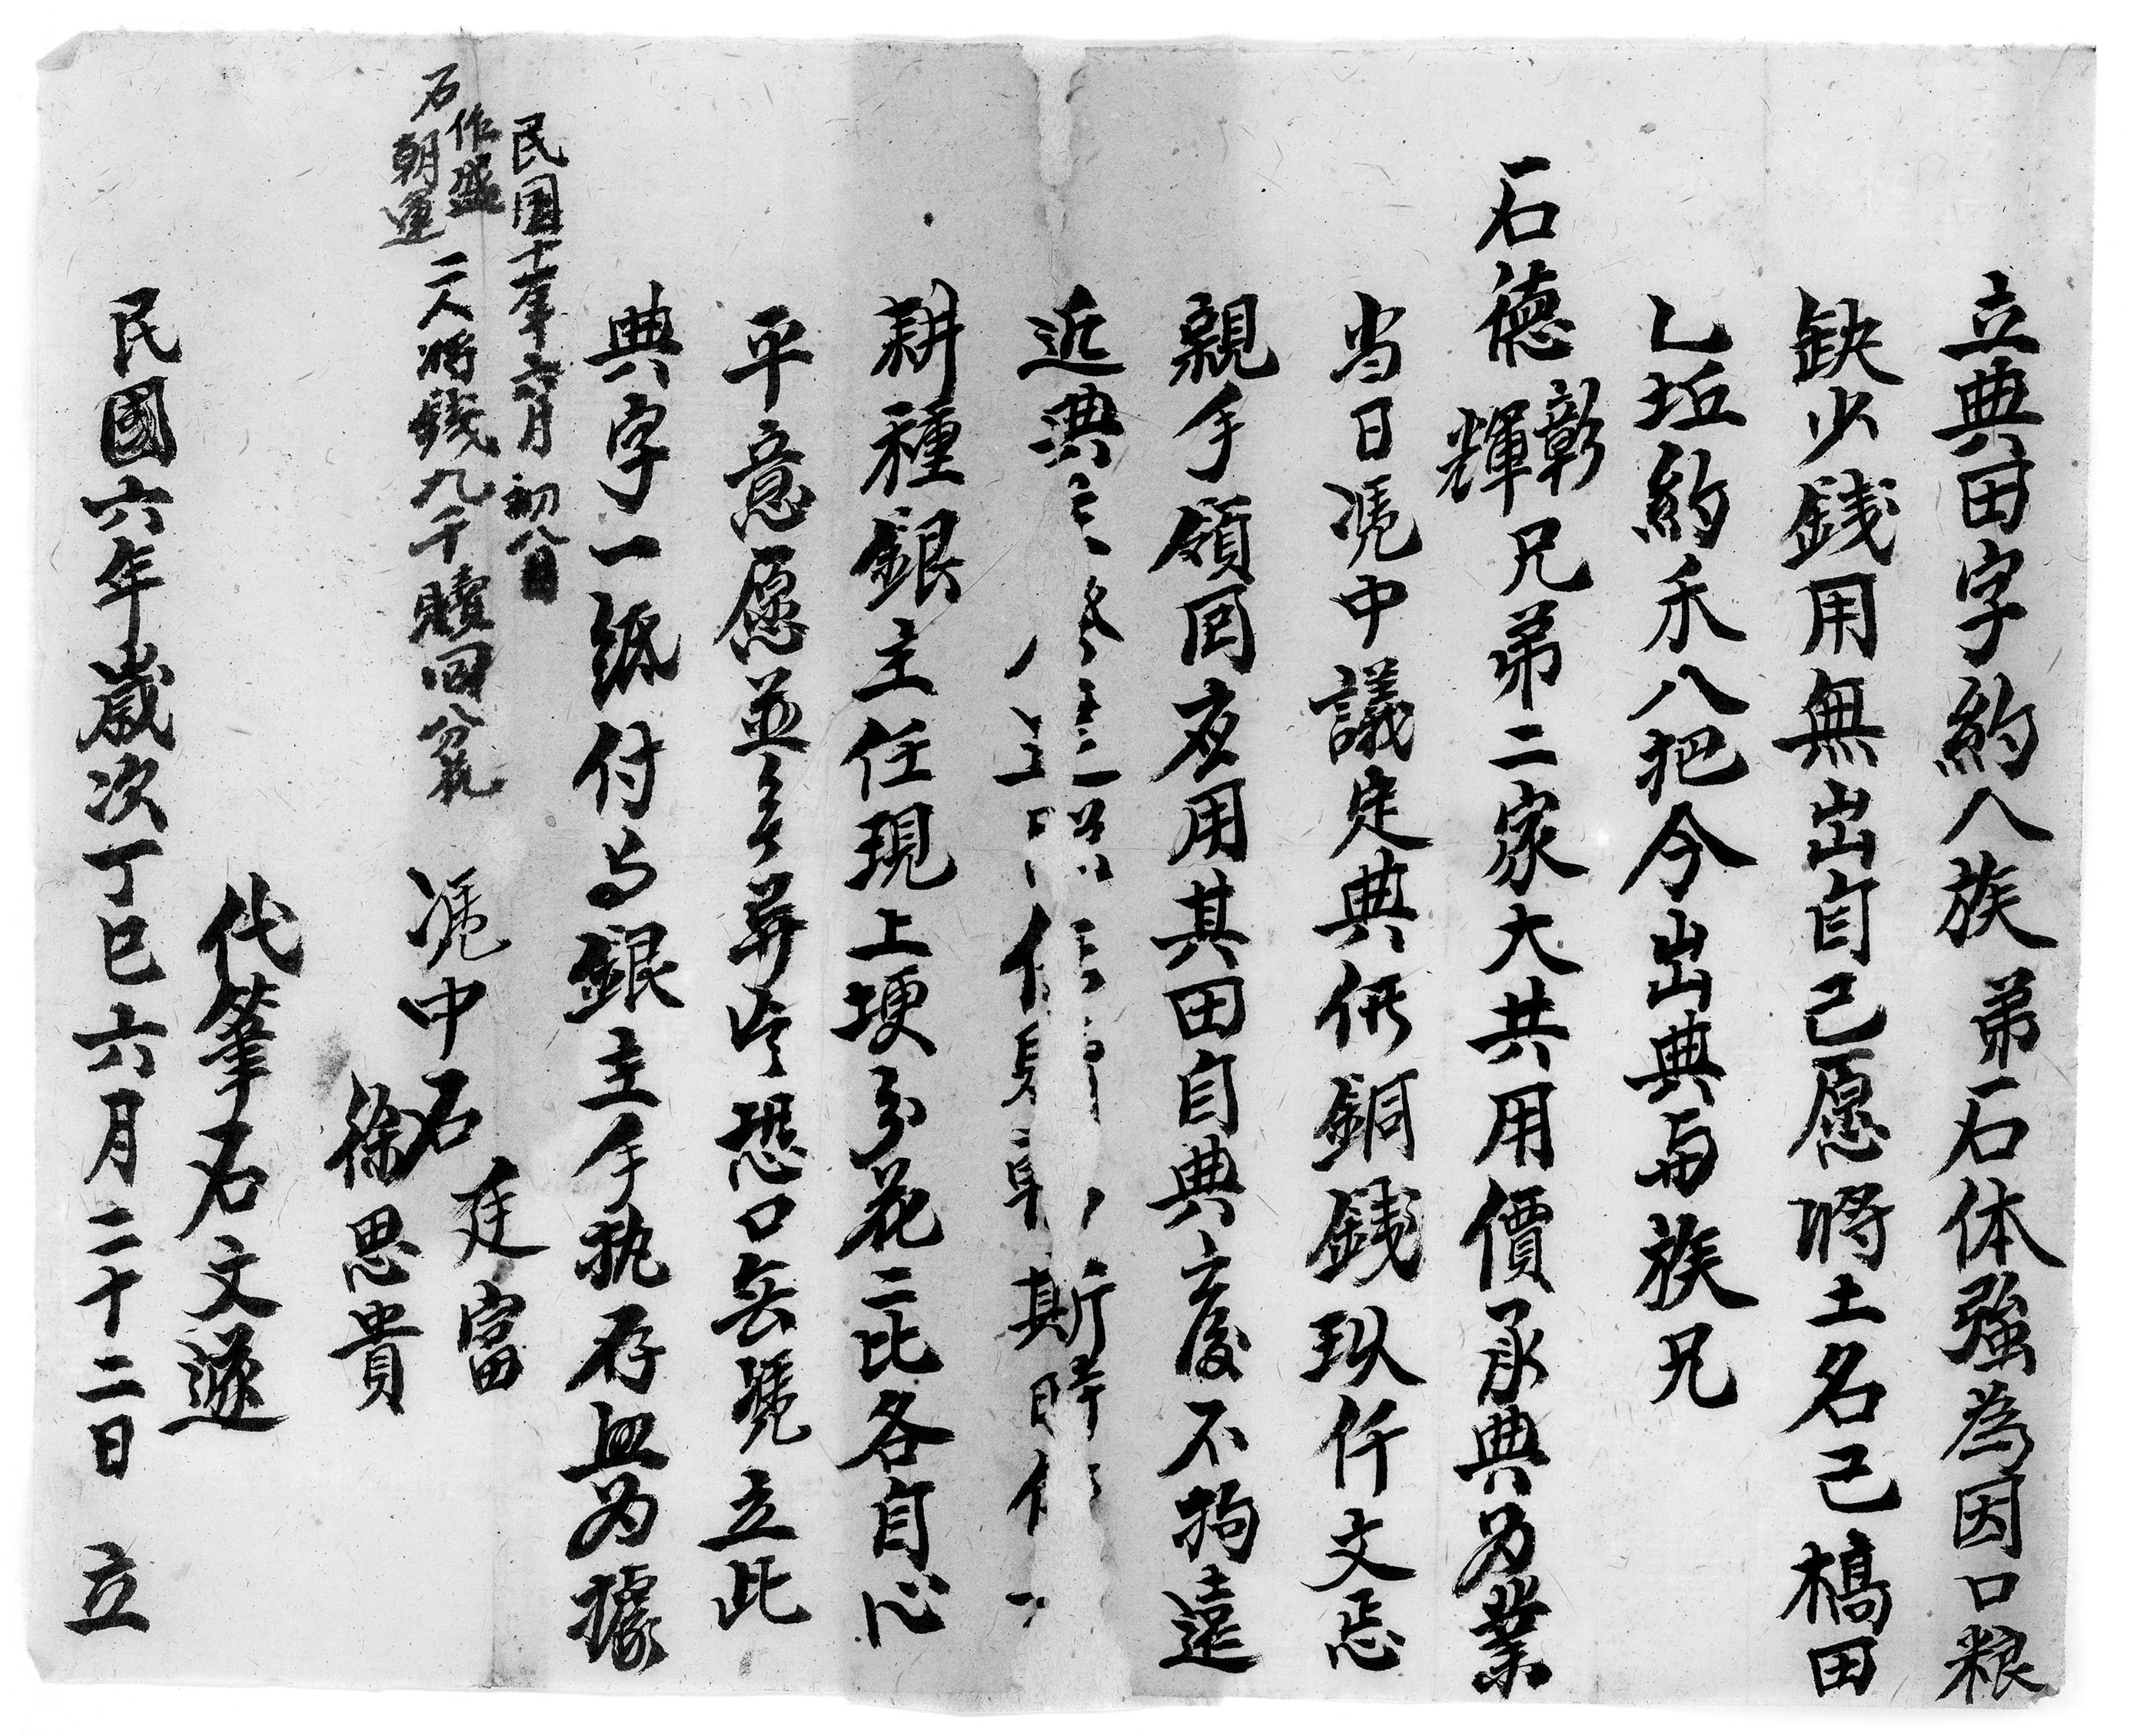 立典田字約人族弟石体強為因口粮
缺少銭用無出自己愿將土名己槁田
乙坵約禾八把今出典与族兄
石德彰輝兄弟二家大共用價承典为業
当日凴中議定典价銅銭玖仟文㤙
親手領囬应用其田自典之後不拘遠
近典
耕種銀主任現上埂分花二比各自心
平意愿並无異今恐口无凴立此
典字一紙付与銀主手执存照为據
凴中石廷富
徐思貴
民國十一年六月初八日
石作盛朝運二人将銭九千贖回
代筆石文遂
民國六年歲次丁巳六月二十二日立